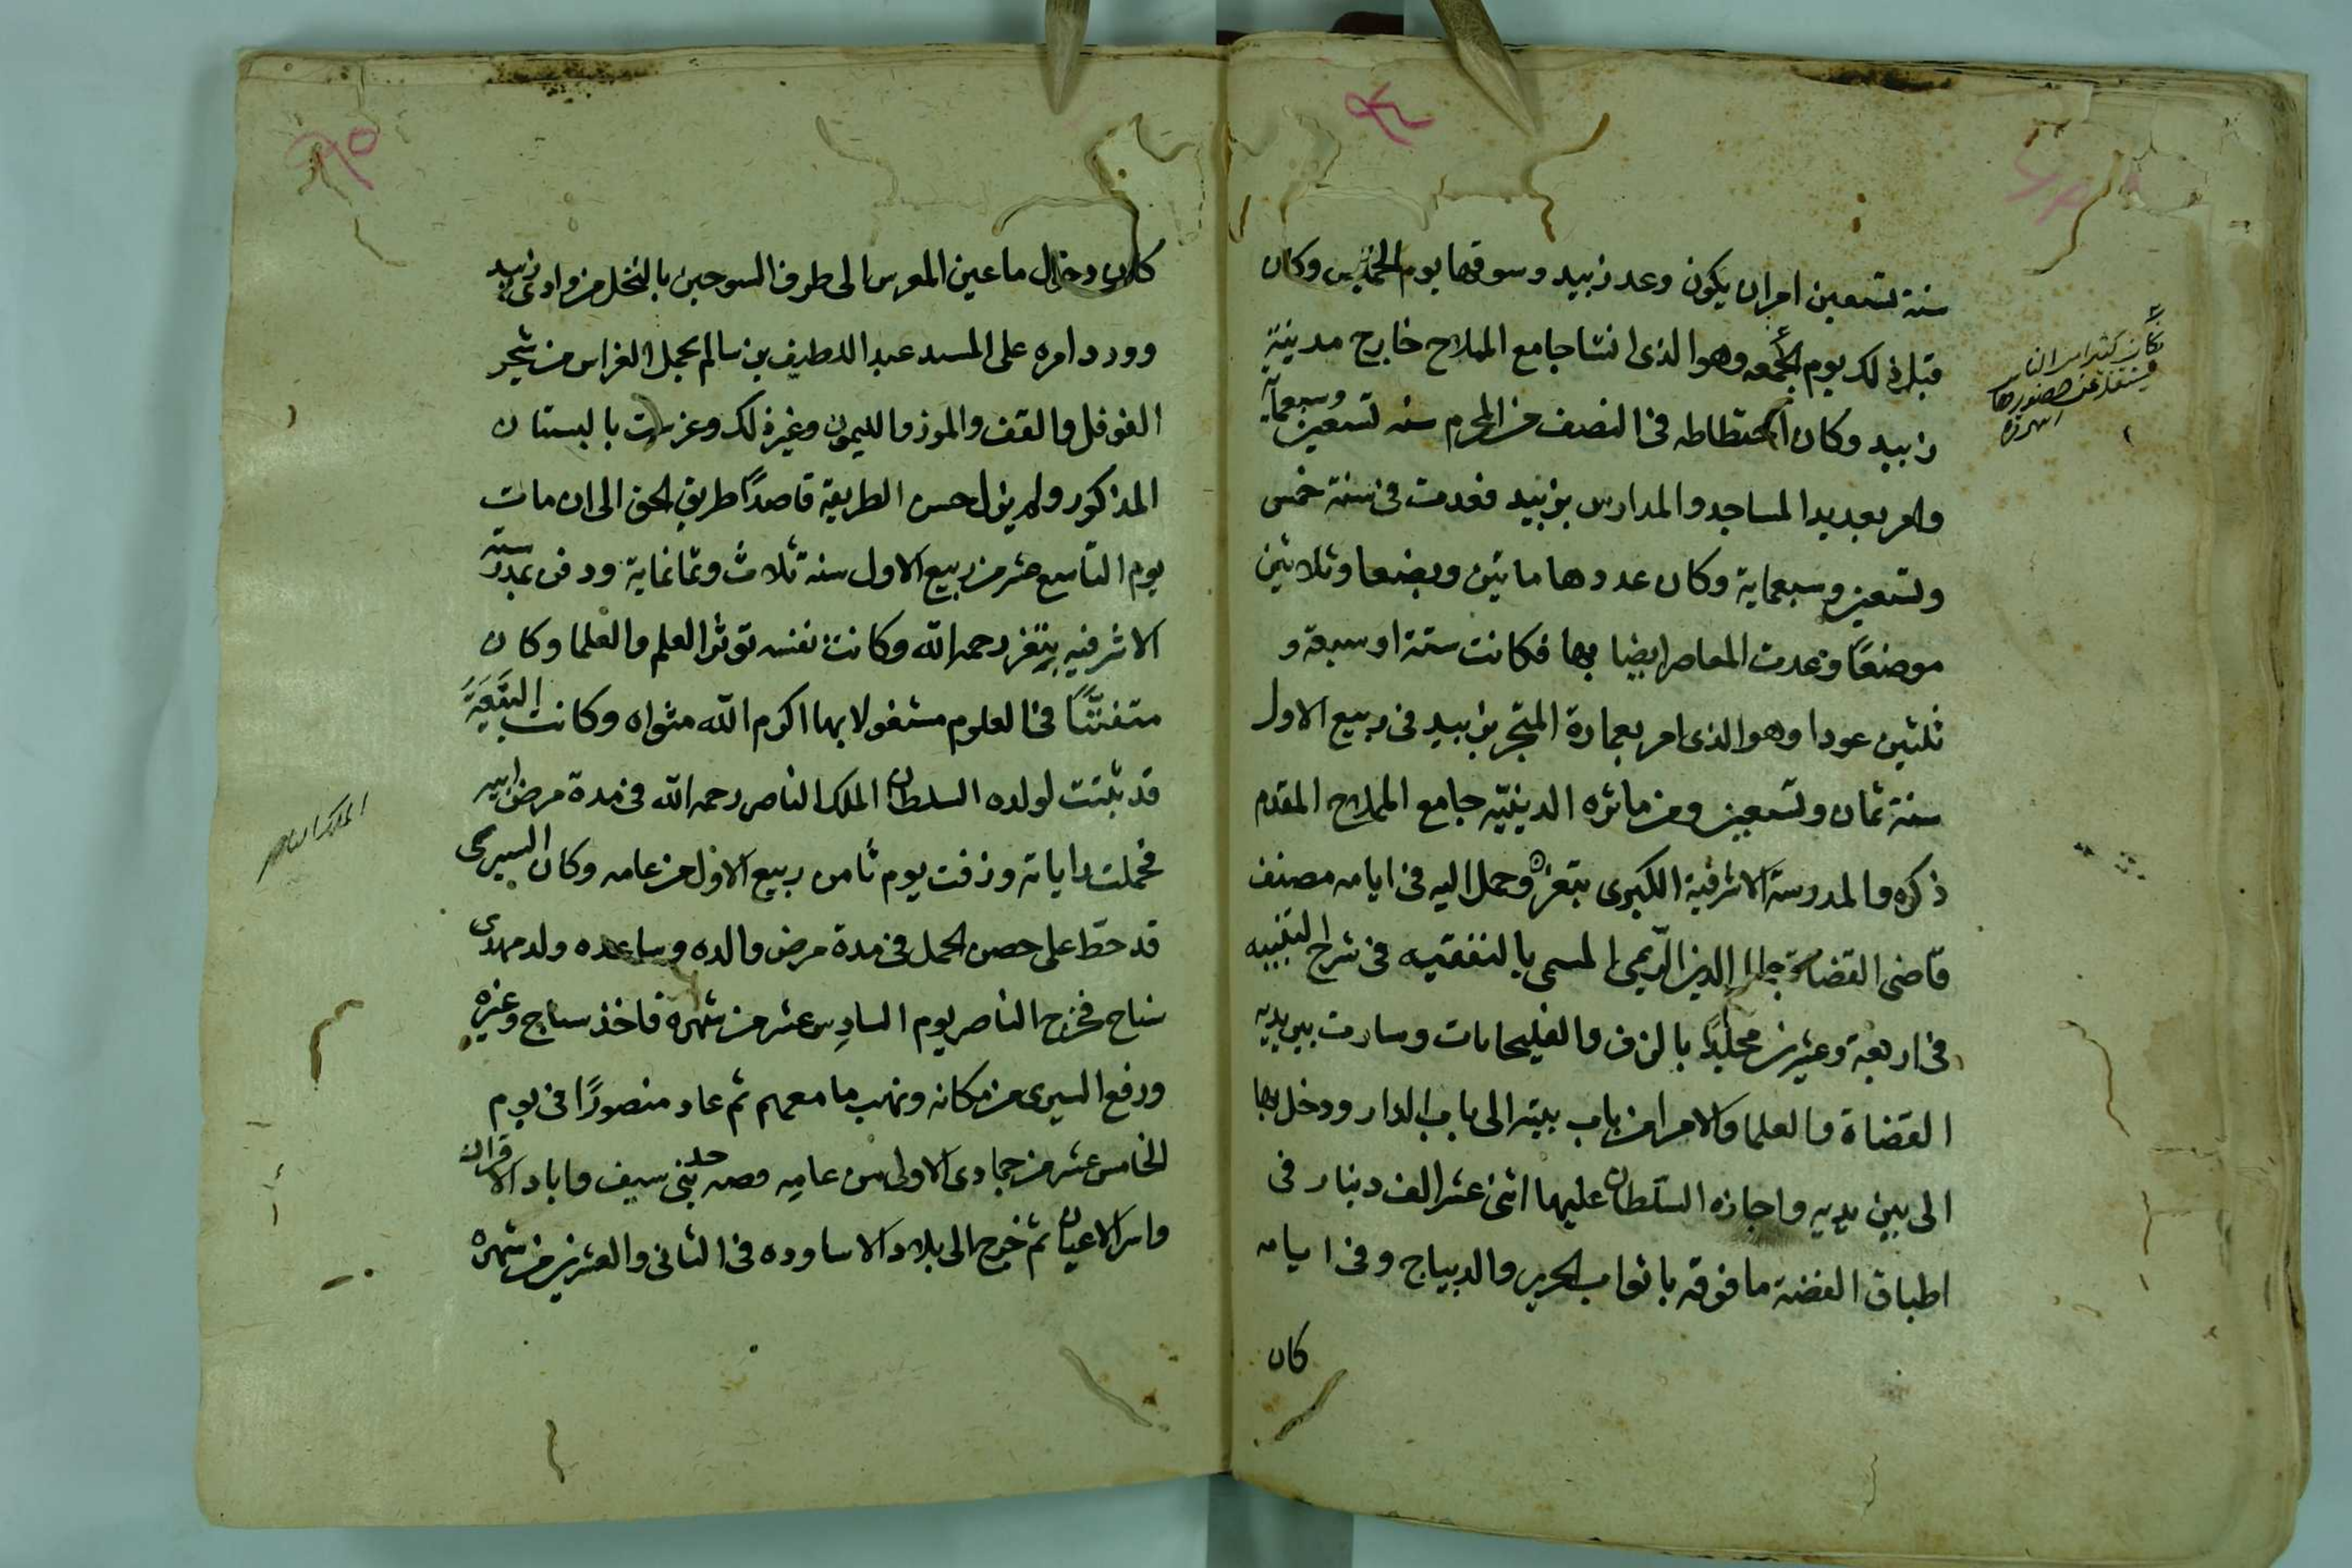 سنة تسعين امران يكون وعد زبيد وسوقها يوم الخميس وكان
قبل ذلك يوم الجمعه وهو الذى انشا جامع المملاح خارج مدينة
زبيد وكان اختطاطه فى النصف من المحرم سنه تسعين وسبعماية
وامر بعديد المساجد والمدارس بزبيد فعدت فى سنة خمس
وتسعين وسبعماية وكان عددها مائتين وبضعا وثلاثين
موضعًا وعدت المعاصر ايضا بها فكانت ستة او سبعة و
ثلثين عودا وهو الذى امر بعمارة المتجر بزبيد فى ربيع الاول
سنة ثمان وتسعين ومن ماثره الدينيّه جامع المملاح المقدم
ذكره والمدرسة الاشرفية الكبرى بتعز وحمل اليه فى ايامه مصنف
قاضى القضاة جمال الدين الريمى المسمى بالتفقيه فى شرح التنبيه
فى اربعة وعشرين مجلدًا بالزف والفليحانات وسارت بين يديه
القضاة والعلما والامرا من باب بيته الى باب الدار ودخل بها
الى بين يديه واجازه السلطان عليها اثنى عشر الف دينار فى
اطباق الفضة مافوقه باثواب الحرير والديباج وفى ايامه
كان
وكان كثير من الناس
حضورها
كان دخال ماعين المعرس الى طرف السوحين بالنخل من وادى زبيد
وورد امره على السيد عبد اللطيف بن سالم بحمل الغراس من شجر
الفوفل والقف والموز والليمون وغيرذلك وغرست بالبستان
المذكور ولم يزل حسن الطريقة قاصدًا طريق الحق الى ان مات
يوم التاسع عشر من ربيع الاول سنه ثلاث وثمانماية ودفن بمدرسته
الاشرفيه بتعز رحمه الله وكانت نفسه توثر العلم والعلما وكان
متفننًا فى العلوم مشغولا بها اكرم الله مثواه وكانت البيعة
قد ثبتت لولده السلطان الملك الناصر رحمه الله فى مدة مرض ابيه
فحملت راياته وزفت يوم ثامن ربيع الاول من عامه وكان السيرى
قد حط على حصن الحمل فى مدة مرض والده وساعده ولد مهدى
سناح فخرج الناصر يوم السادس عشر من شهره فاخذ سناح وغيره
ورفع السيرى من مكانه ونهب ما معهم ثم عاد منصورًا فى يوم
الخامس عشر من جمادى الاولى من عامه وصه حد بنى سيف واباد الاقران
واسر الاعيان ثم خرج الى بلاد الاساوده فى الثانى والعشرين من شهره
الملك الناصر